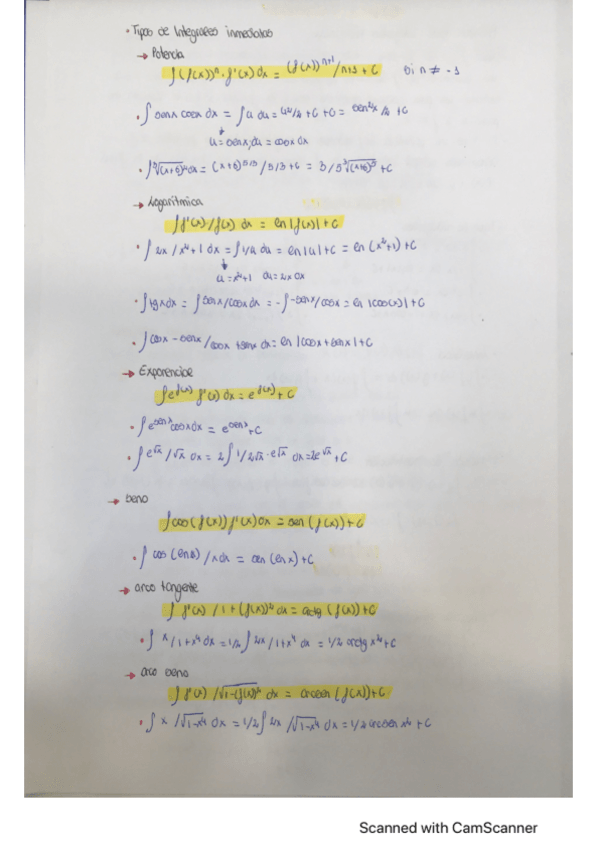 • Tipos de Integrales inmediatas
→ Potencia
∫(f(x))ⁿ · f'(x) dx = (f(x))ⁿ⁺¹/n+1 + C    Si n ≠ -1
• ∫ senx cosx dx = ∫u du = u²/2 + C = sen²x/2 + C
u = senx, du = cosx dx
• ∫ ∛(x+5)² dx = (x+5)^5/3 / 5/3 + C = 3/5 ∛(x+5)⁵ + C
→ Logarítmica
∫ f'(x)/f(x) dx = ln|f(x)| + C
• ∫ 2x/x²+1 dx = ∫1/u du = ln|u| + C = ln(x²+1) + C
u = x²+1 du = 2x dx
• ∫tgxdx = ∫senx/cosx dx = -∫-senx/cosx = ln|cos(x)| + C
• ∫cosx - senx/cosx + senx dx = ln|cosx + senx| + C
→ Exponencial
∫e^f(x) f'(x) dx = e^f(x) + C
• ∫e^senx cosx dx = e^senx + C
• ∫e^√x/√x dx = 2∫1/2√x · e^√x dx = 2e^√x + C
→ seno
∫cos(f(x)) f'(x) dx = sen(f(x)) + C
• ∫ cos(lnx)/x dx = sen(lnx) + C
→ arco tangente
∫ f'(x)/1+(f(x))² dx = arctg(f(x)) + C
• ∫ x/1+x⁴ dx = 1/2 ∫ 2x/1+x⁴ dx = 1/2 arctg x² + C
→ arco seno
∫ f'(x)/√1-(f(x))² dx = arcsen(f(x)) + C
• ∫ x/√1-x⁴ dx = 1/2∫2x/√1-x⁴ dx = 1/2 arcsen x² + C
Scanned with CamScanner